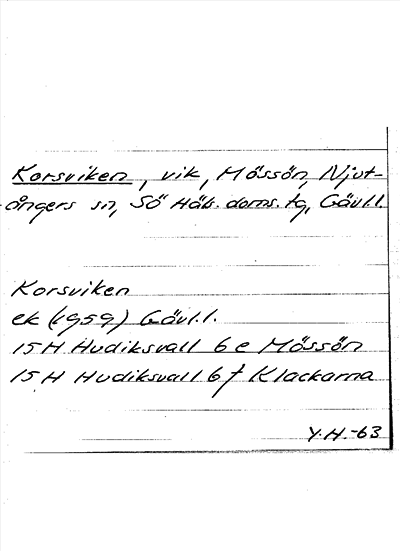 Korsviken, vik, Mössön, Njut-
ångers sn, Sö Häls. doms. tg, Gävl.l.
Korsviken
ek (1959) Gävl.l.
15H Hudiksvall 6e Mössön
15H Hudiksvall 6f Klackarna
Y.H.-63